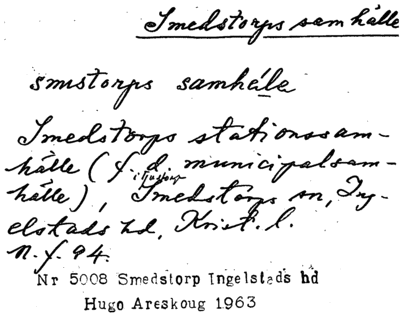 Smedstorps samhälle
smstorps samhäle
Smedstorps stationssam-
hälle (f. d. municipalsam-
hälle), Smedstorps sn, Ing-
elstads hd, Krist. l.
n. f. 94.
Nr 5008 Smedstorp Ingelstads hd
Hugo Areskoug 1963